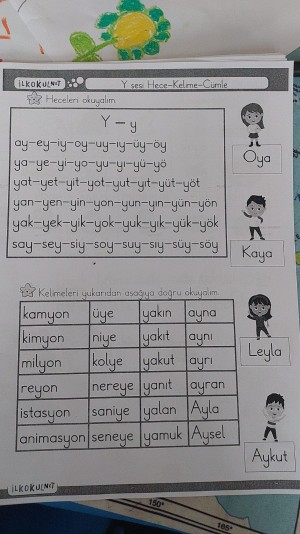 İLKOKULNUT
Y sesi Hece-Kelime-Cümle
Heceleri okuyalım
Y – y
ay-ey-iy-oy-uy-ıy-üy-öy
ya-ye-yi-yo-yu-yı-yü-yö
yat-yet-yit-yot-yut-yıt-yüt-yöt
yan-yen-yin-yon-yun-yın-yün-yön
yak-yek-yik-yok-yuk-yık-yük-yök
say-sey-siy-soy-suy-sıy-süy-söy
Oya
Kaya
Kelimeleri yukarıdan aşağıya doğru okuyalım
kamyon üye yakın ayna
kimyon niye yakıt aynı
milyon kolye yakut ayrı
reyon nereye yanıt ayran
istasyon saniye yalan Ayla
animasyon seneye yamuk Aysel
Leyla
Aykut
İLKOKULNUT
150°